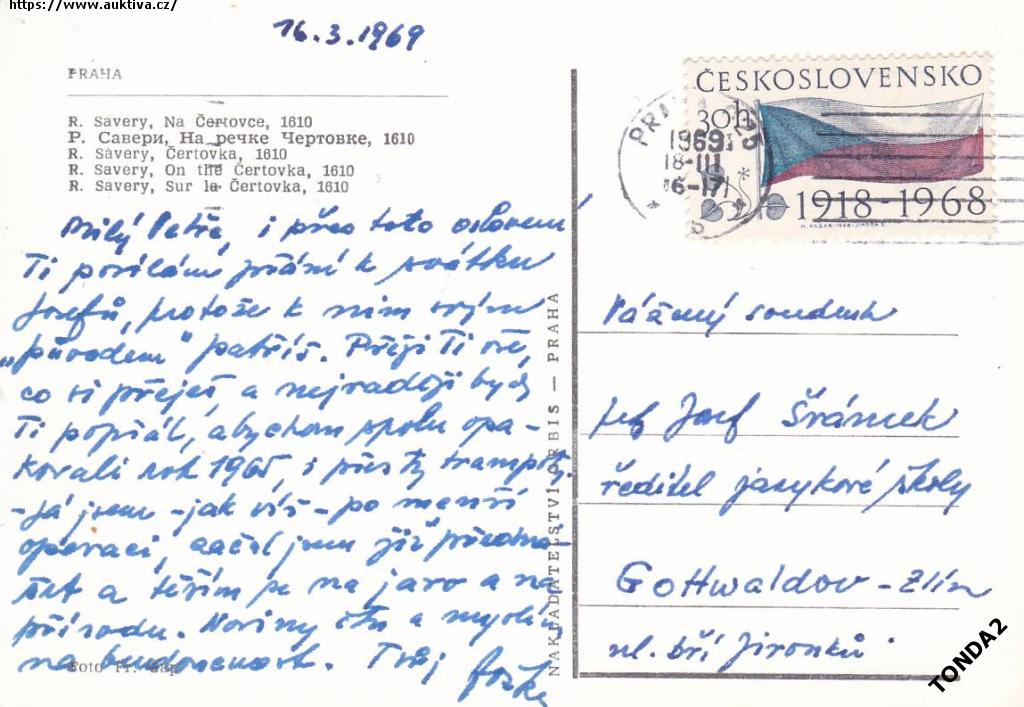 https://www.auktiva.cz/
16.3.1969
PRAHA
R. Savery, Na Čertovce, 1610
Р. Савери, На речке Чертовке, 1610
R. Savery, Čertovka, 1610
R. Savery, On the Čertovka, 1610
R. Savery, Sur la Čertovka, 1610
Milý Petře, i přes toto oslovení
Ti posílám přání k svátku
Josefů, protože k nim svým
„původem" patříš. Přeji Ti vše,
co si přeješ a nejraději bych
Ti popřál, abychom spolu opa-
kovali rok 1965, i přes ty trampoty.
-Já jsem -jak víš- po menší
operaci, začal jsem již předná-
šet a těším se na jaro a na
přírodu. Noviny čtu a myslím
na budoucnost. Tvůj
Foto Fr.
NAKLADATELSTVÍ ORBIS — PRAHA
ČESKOSLOVENSKO
30h
1918-1968
1969
18-III
16-17
Vážený soudruh
Josef Šrámek
ředitel jazykové školy
Gottwaldov - Zlín
ul. bří Jironků
TONDA2